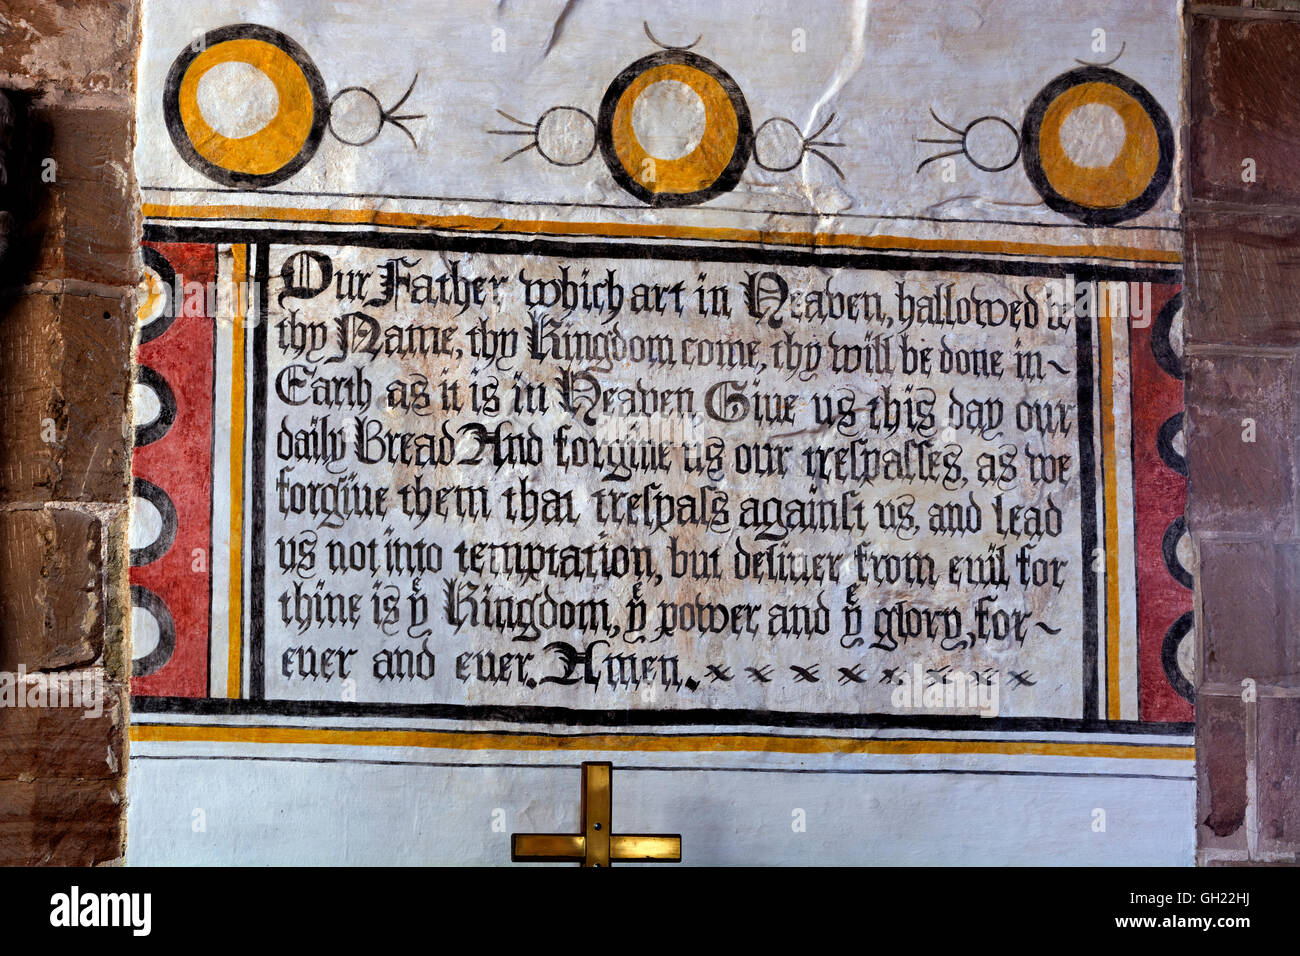 Our Father which art in Heaven, hallowed be
thy Name, thy Kingdom come, thy will be done in~
Earth as it is in Heaven, Give us this day our
daily Bread And forgive us our trespasses, as we
forgive them that trespass against us, and lead
us not into temptation, but deliver from evil for
thine is yͤ Kingdom, yͤ power and yͤ glory, for~
ever and ever. Amen. x x x x x x x x
a alamy stock photo
GH22HJ
www.alamy.com